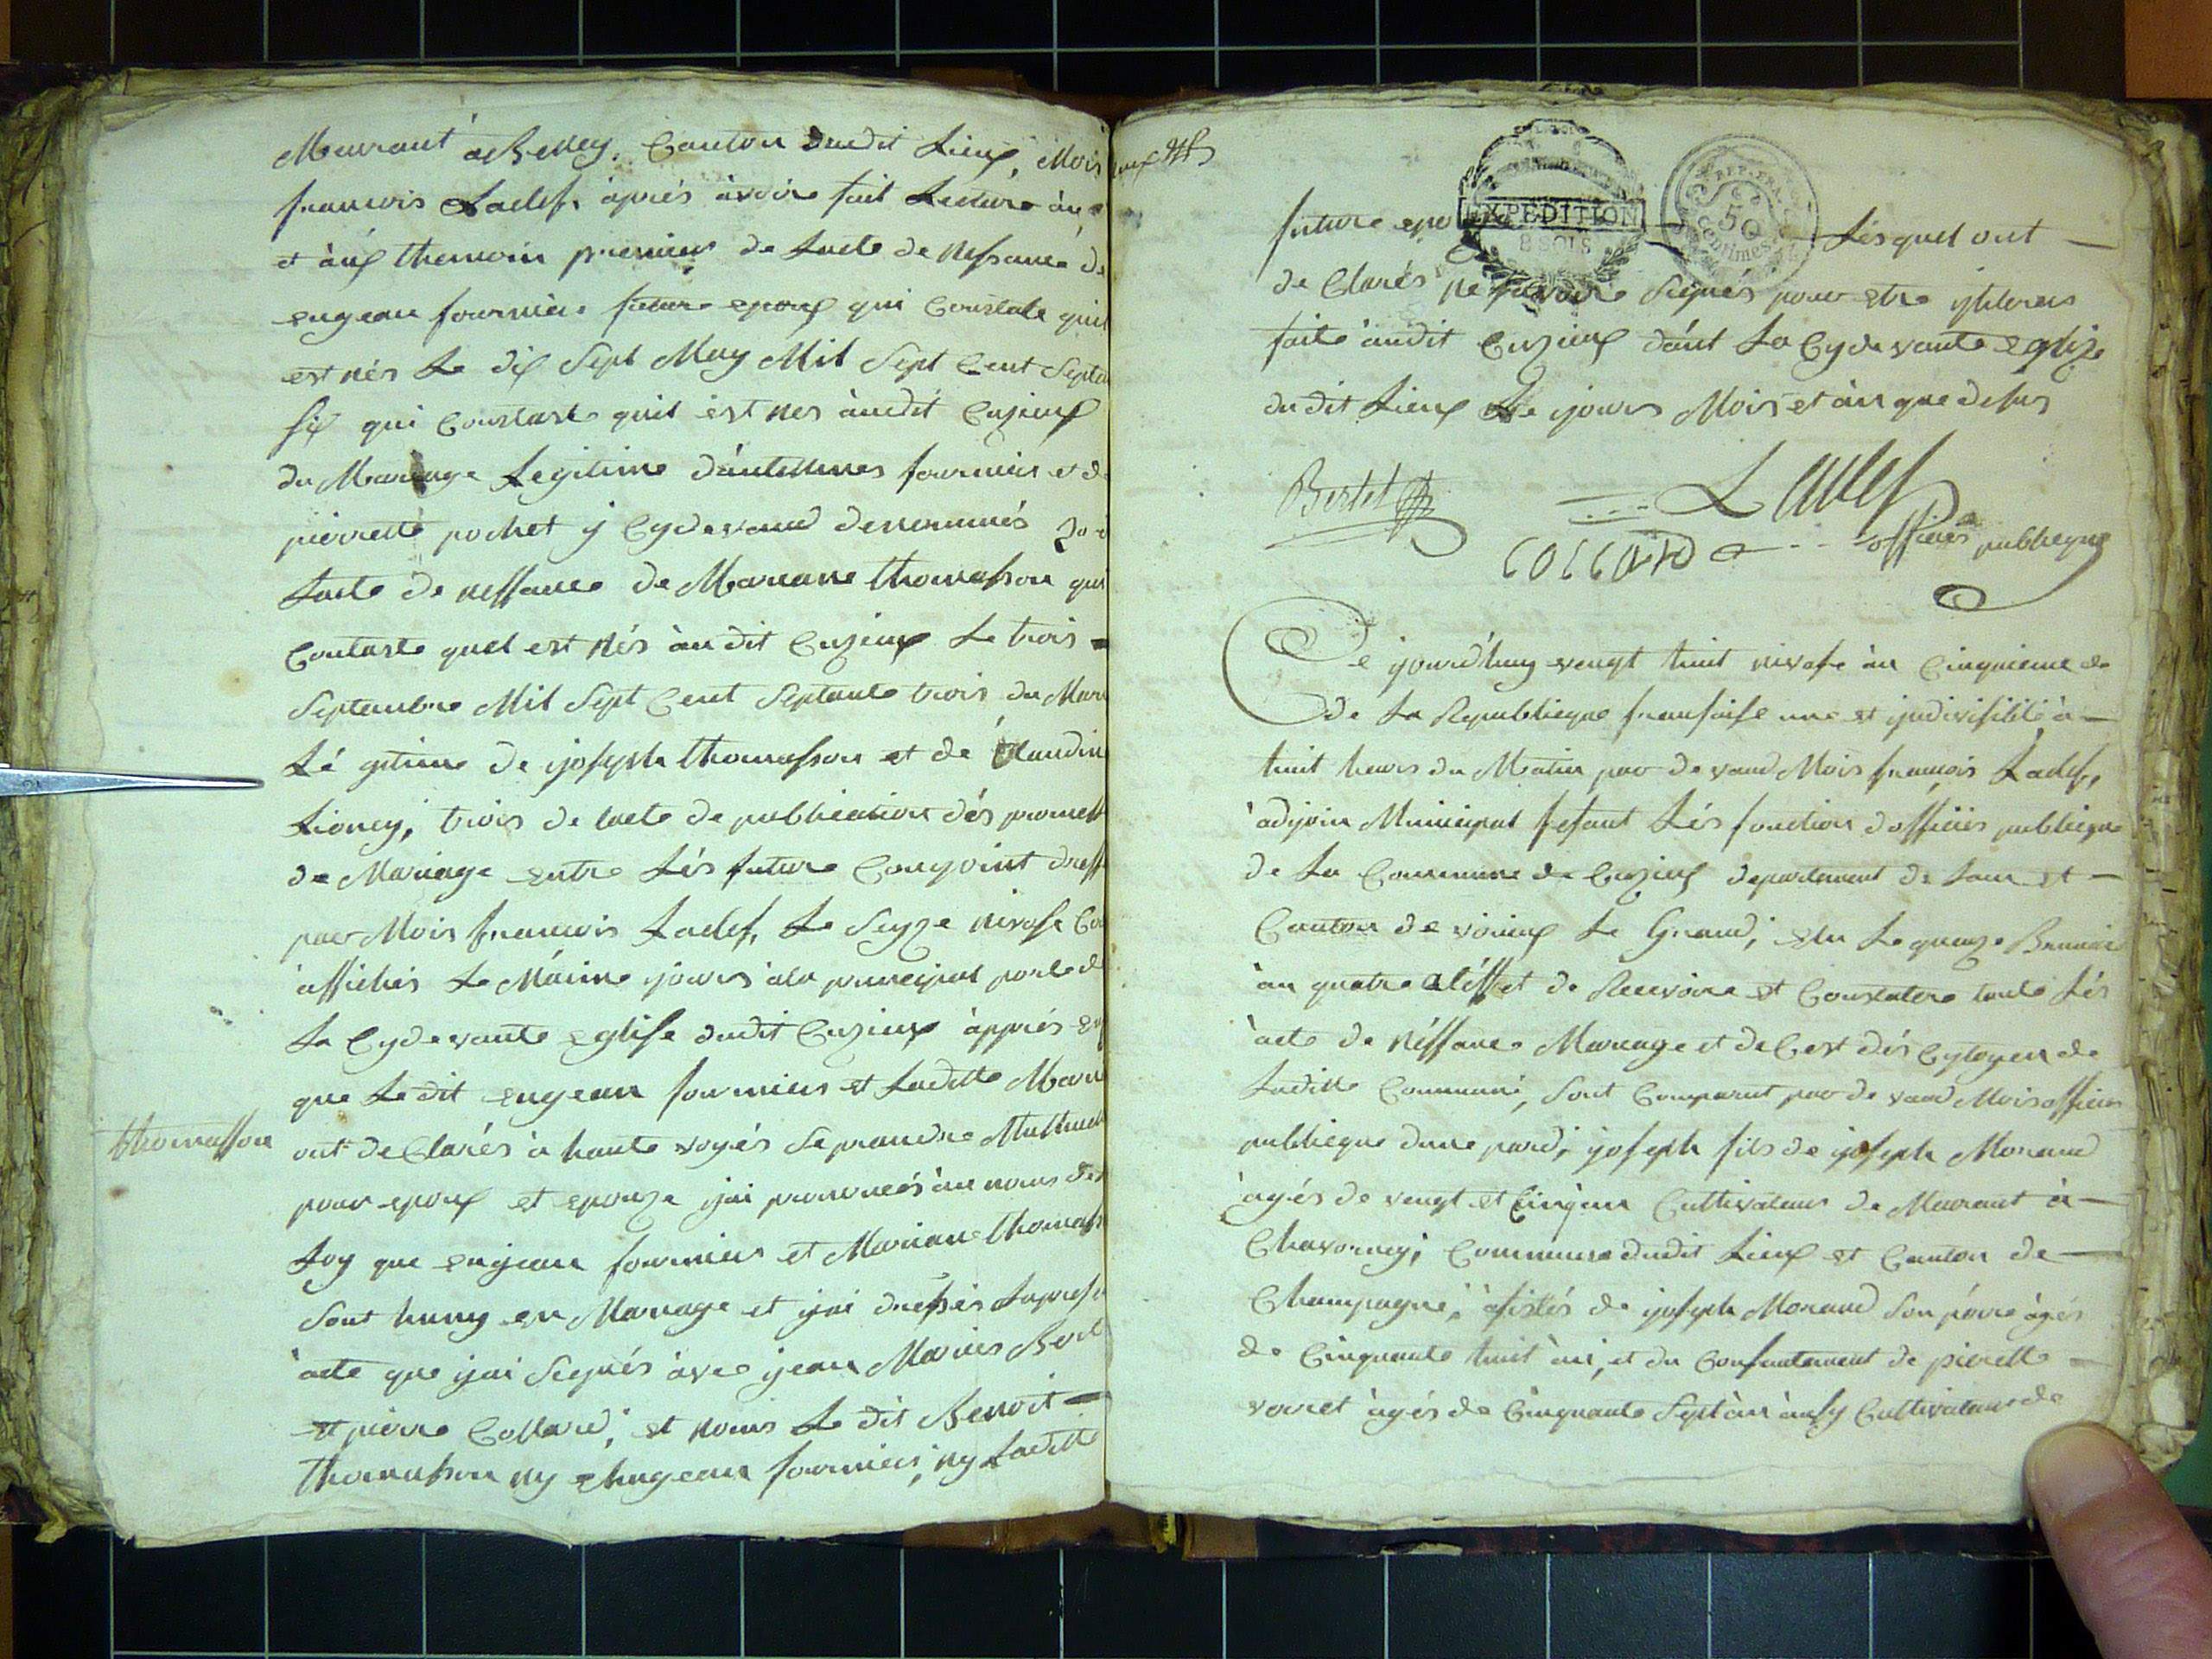 Meurant à Belley, Canton dudit Lieux, Mois
francois Ladef, àprés àvoire fait Lecture àu
et àux themoin premier de Lacte de Nessance de
engean fournier future epoux qui Constate quil
est nés Le dix Sept May Mil Sept Cent Septa
six qui Constaste quil est nes àudit Cuzieux
du Mariage Legitime dàntellmes fournier et de
pierrette pochet y Cydevand denommés 2o
Lacte de nessance de Mariane thomasson qui
Contaste quel est Nés àudit Cuzieux Le trois
Septembre Mil Sept Cent Septante trois du Mari
Lé gitime de ijoseph thomasson et de Claudin
Lioney, trois de lacte de publication dés promess
de Mariage entre Lés future Conyoint dress
par Mois francois Ladef, Le Seyze nivose
àffichés Le Màime ijours àla principal porte de
La Cydevante Eglise dudit Cuzieux àpprés
que Le dit engean fournier et Laditte Mari
thomasson
ont de Clarés à haute voyés Se prandre Mutuel
pour epoux et epouze ijai prononcés àu noms de
Loy que engean fournier et Mariane thomass
Sont huny en Mariage et ijai dressés Lapres
àcte que ijai Segnés àvec ijean Marier Bert
et pierre Collard, et nomis Le dit Benoit
thomasson ny Engean fournier, ny Laditte
future epo Lésquel ont
de Clarés ne Savoire Segnés pour etre
EXPEDITION
8 SOLS
REP. FRA.
50
Centimes
faite àudit Cuzieux dànt La Cydevante Eglize
dudit Lieux Le ijours Mois et àn que desus
Bertet
Ladef
COLLARD officier publieque
Ce ijourdhuy vengt huit nivose àn Cinquieme de
de La Republieque fransaise une et yndivisibilité à
huit heurs du Matin par devand Mois francois Ladef,
àdijoin Municipal fesant Lés fonction dofficier publieque
de La Commune de Cuzieux departement de Lain et
Canton de virieux Le Grand, elu Le quinze Brumaire
àn quatre à léffet de Recevoire et Constatere toute Lés
àcte de Néssance Mariage et deCest dés Cytoyen de
Laditte Commune, Sont Comparut par de vand Mois officier
publieque dune pard, ijoseph fils de ijoseph Monand
àgés de vengt et Cinq àn Cultivateur de Meurant à
Chavorney, Commune dudit Lieux et Canton de
Champagne, àsistés de ijoseph Monand Son pére àgés
de Cinquante huit àn, et du Consentement de pierette
voiret àgés de Cinquante Sept àn àusy Cultivateur de